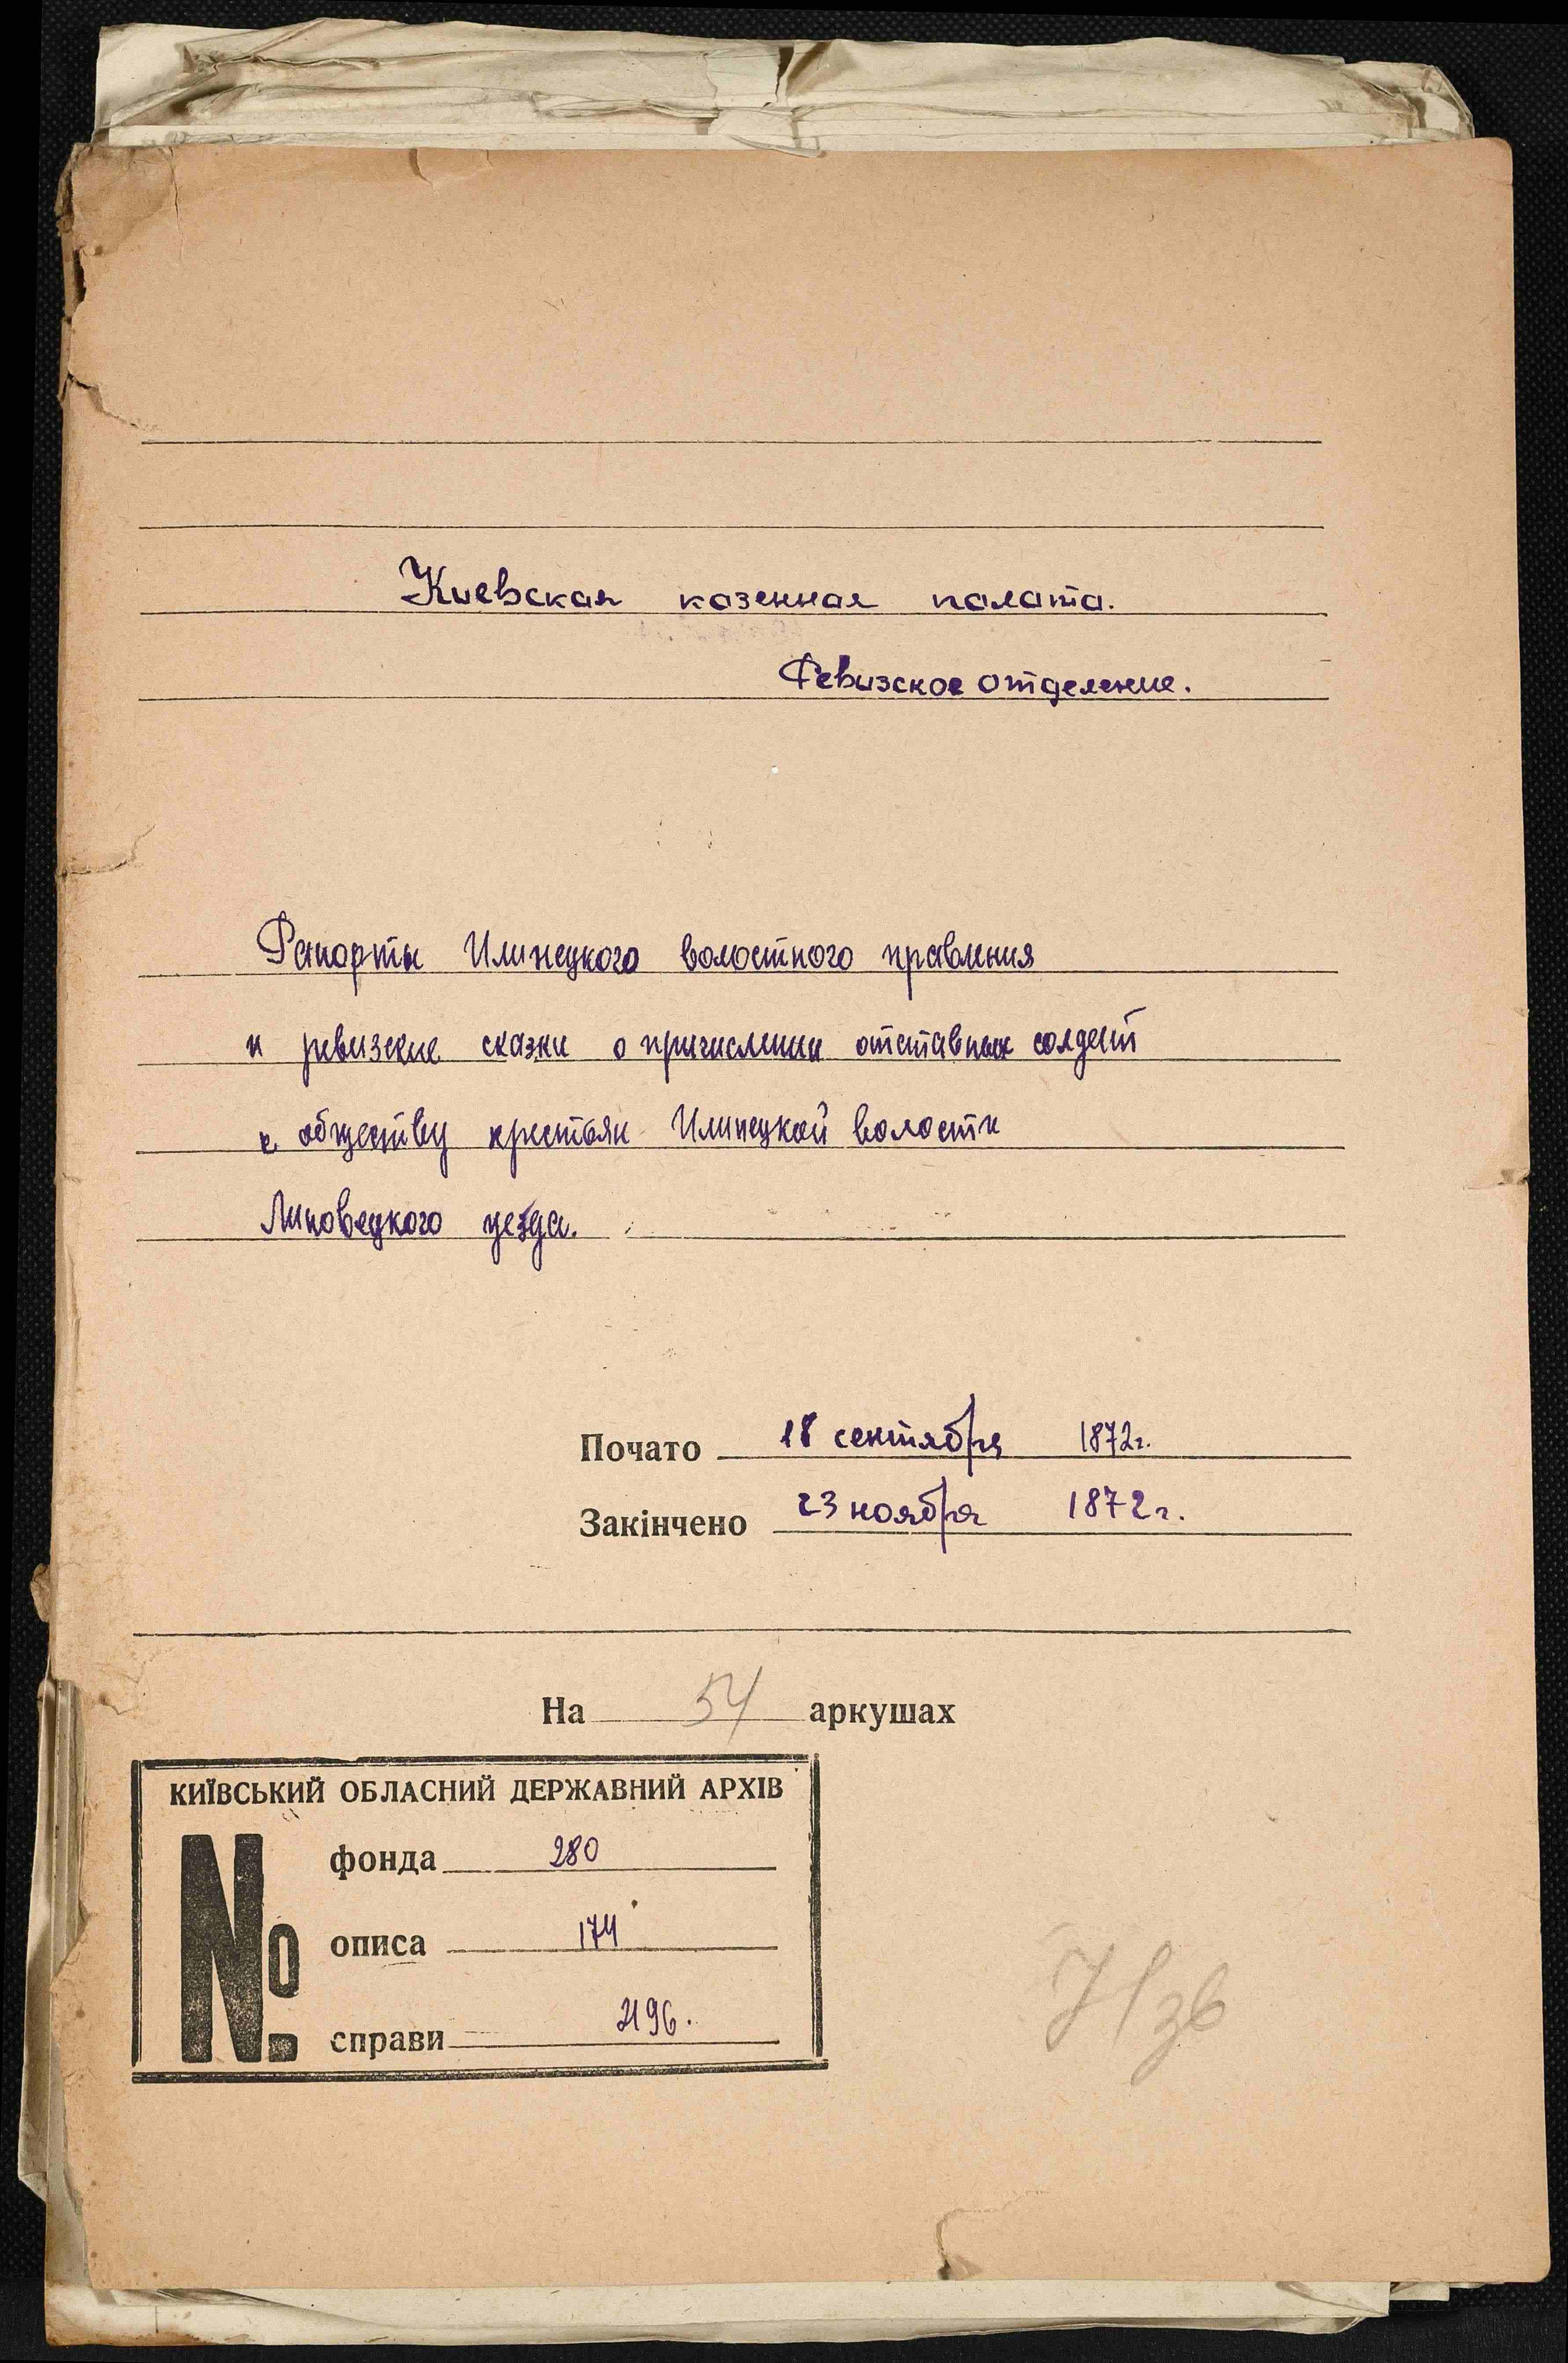 Киевская казенная палата.
Ревизское отделение.
Рапорты Илинецкого волостного правления
и ревизские сказки о причислении отставных солдат
к обществу крестьян Илинецкой волости
Липовецкого уезда.
Почато 18 сентября 1872г.
Закінчено 23 ноября 1872г.
На 54 аркушах
КИЇВСЬКИЙ ОБЛАСНИЙ ДЕРЖАВНИЙ АРХІВ
№ фонда 280
описа 174
справи 2196.